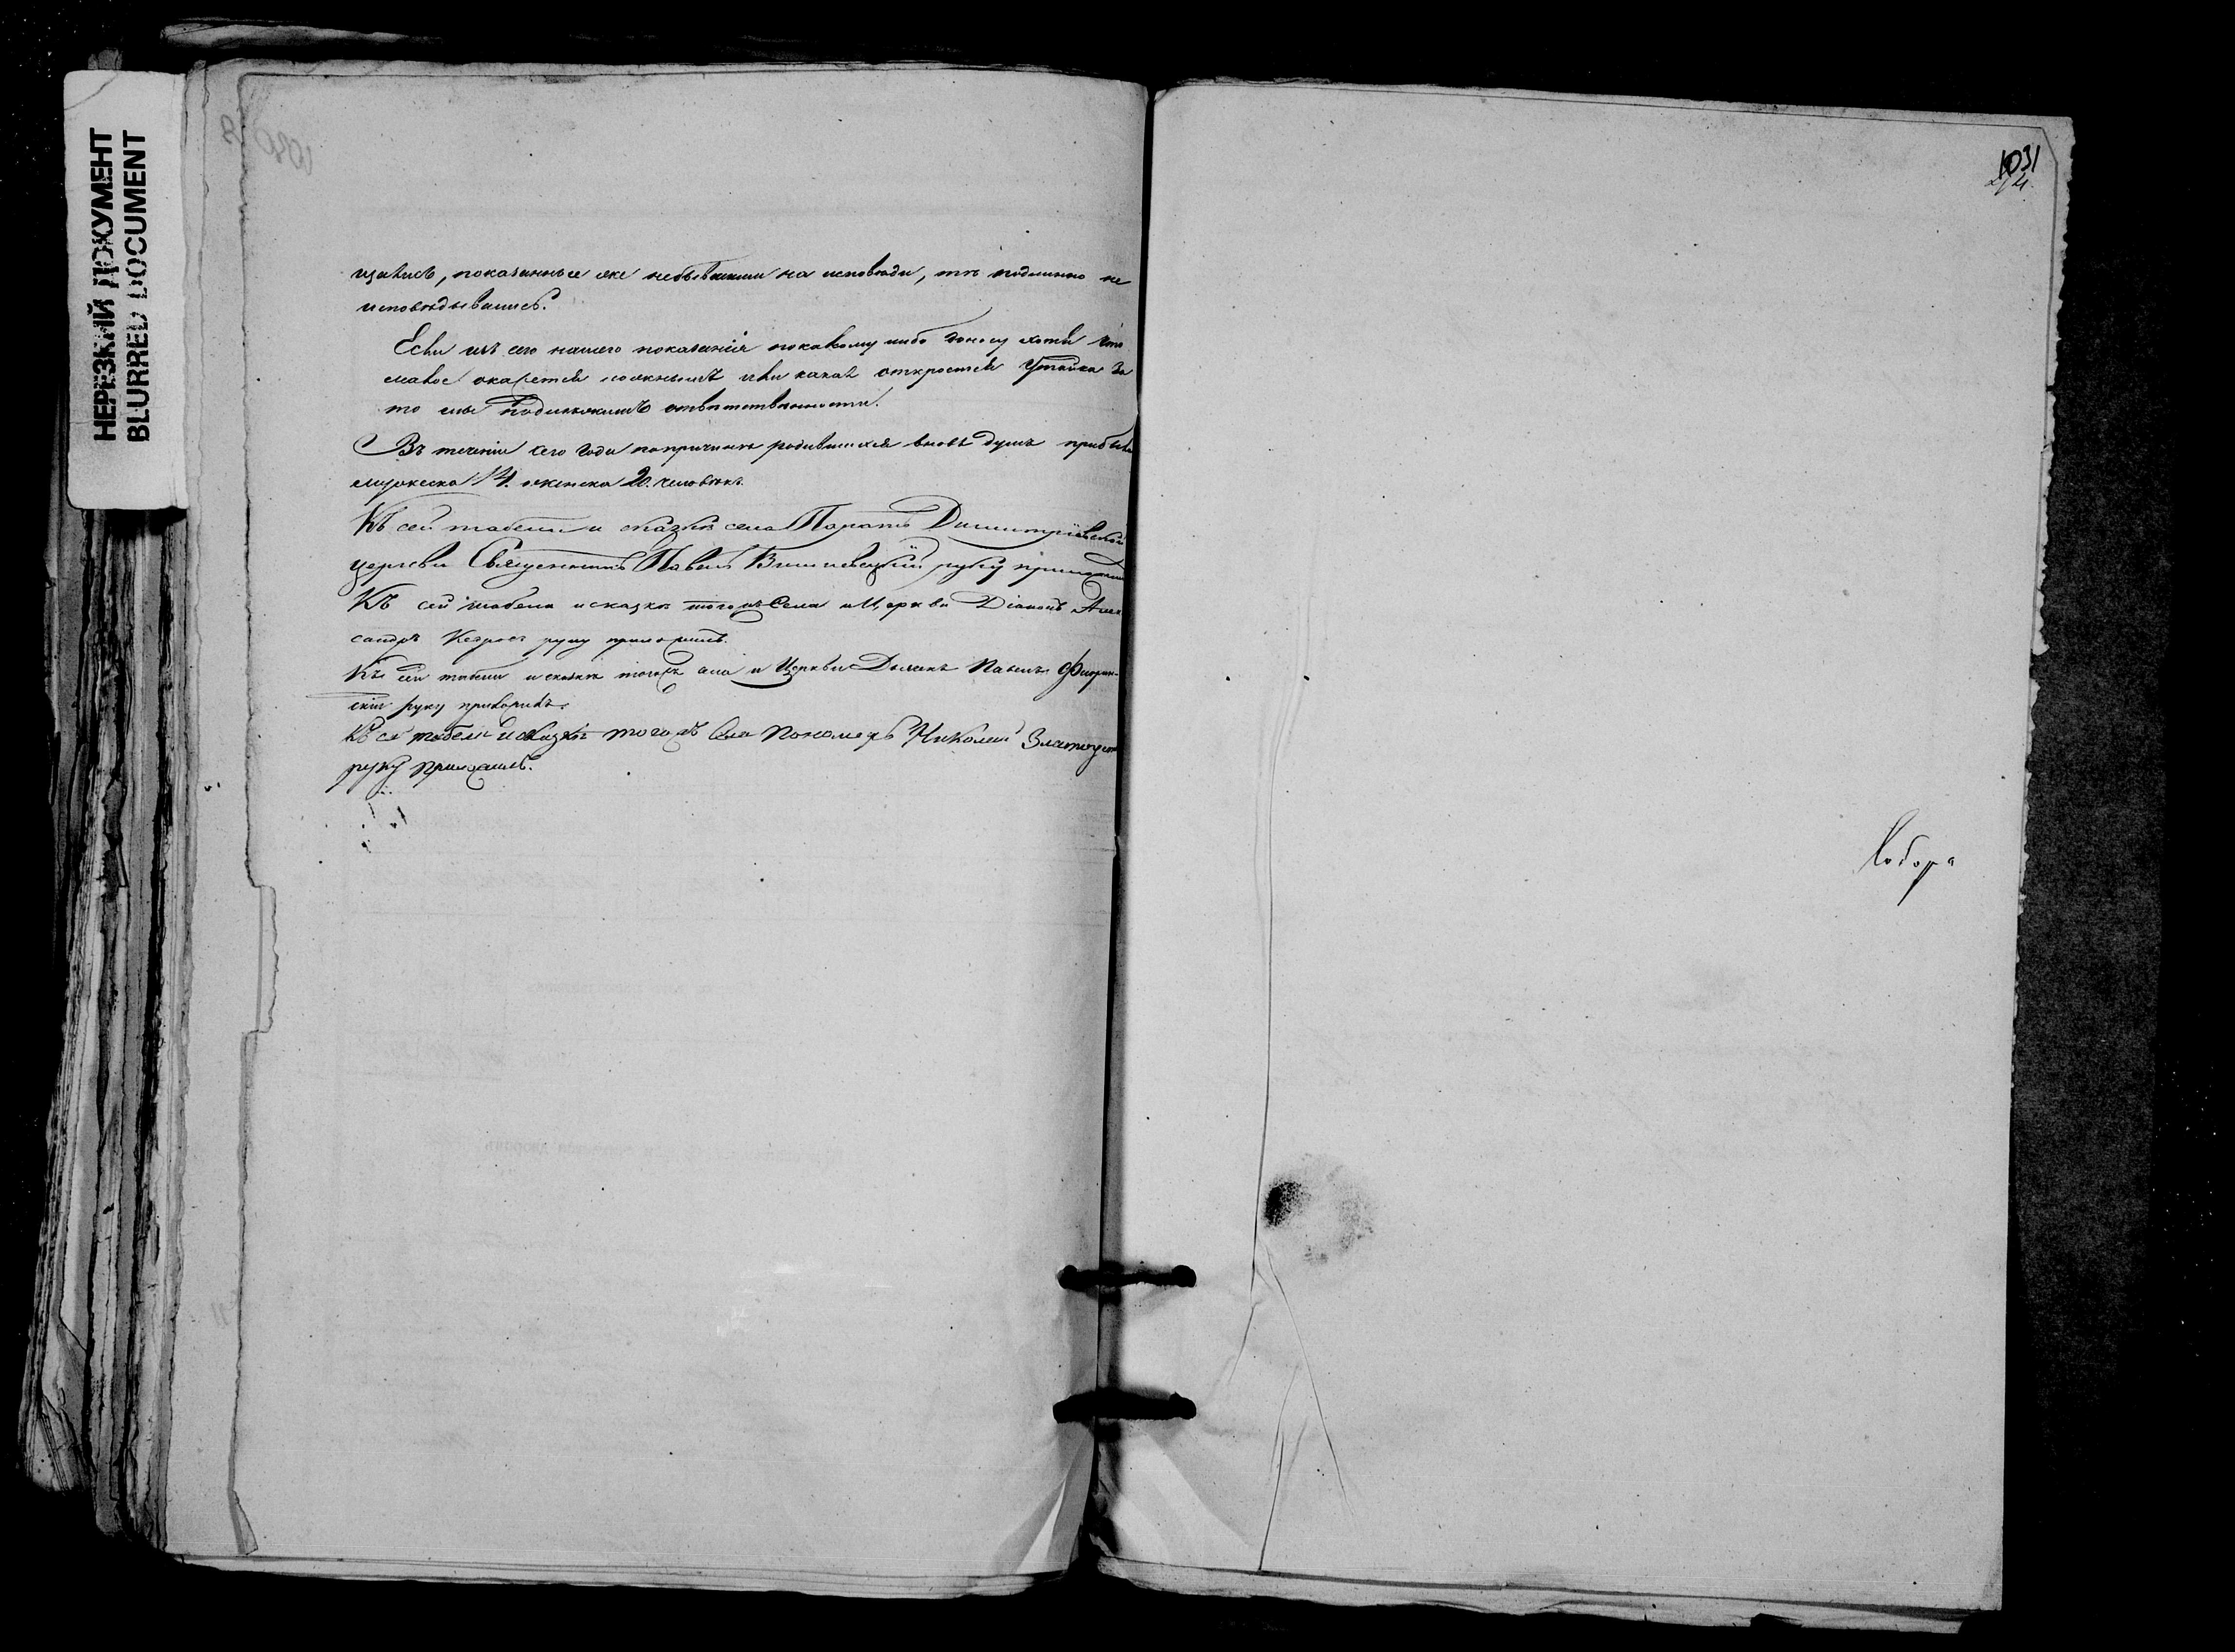 НЕРЕЗКИЙ ДОКУМЕНТ
BLURRED DOCUMENT
1031
щались, показанные же небывшими на исповѣди, тѣ подлинно не
исповѣдывались.
Если изъ сего нашего показанія покакому либо доносу хотя что
малое окажется ложнымъ или какая откроется утайка за
то мы подлежимъ отвѣтственности.
Въ теченіи сего года попричинѣ родившихся вновь душъ прибыло
мужеска 14. женска 20. человѣкъ.
Къ сей табели и сказкѣ села Паратъ Димитріевской
церкви Священникъ Павелъ руку приложилъ
Къ сей табели и сказкѣ тогожъ Села и Церкви Діаконъ Алек
сандръ руку приложилъ.
Къ сей табели и сказкѣ тогожъ села и Церкви Дьячекъ Павелъ
скій руку приложилъ.
Къ сей табели и сказкѣ тогожъ Села Пономарь Николай
руку приложилъ.
Собора